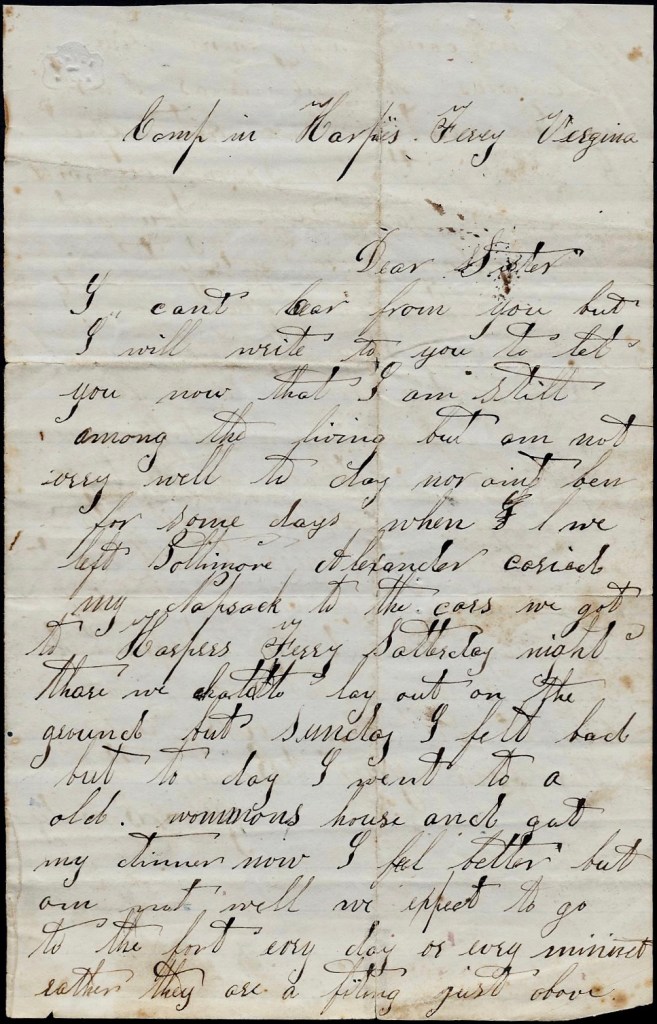 Camp in Harpers Ferry Vergina
Dear Sister
I cant hear from you but
I will write to you to let
you now that I am still
among the living but am not
very well to day nor aint ben
for some days when I we
left Boltimore Alexander caried
my napsack to the cars we got
to Harpers Ferry Satterday night
thare we had to lay out on the
ground but sunday I felt bad
but to day I went to a
old. wommons house and gat
my dinner now I feel better but
am not well we expect to go
to the fort evry day or evry mininet
rather they are a fiting just above